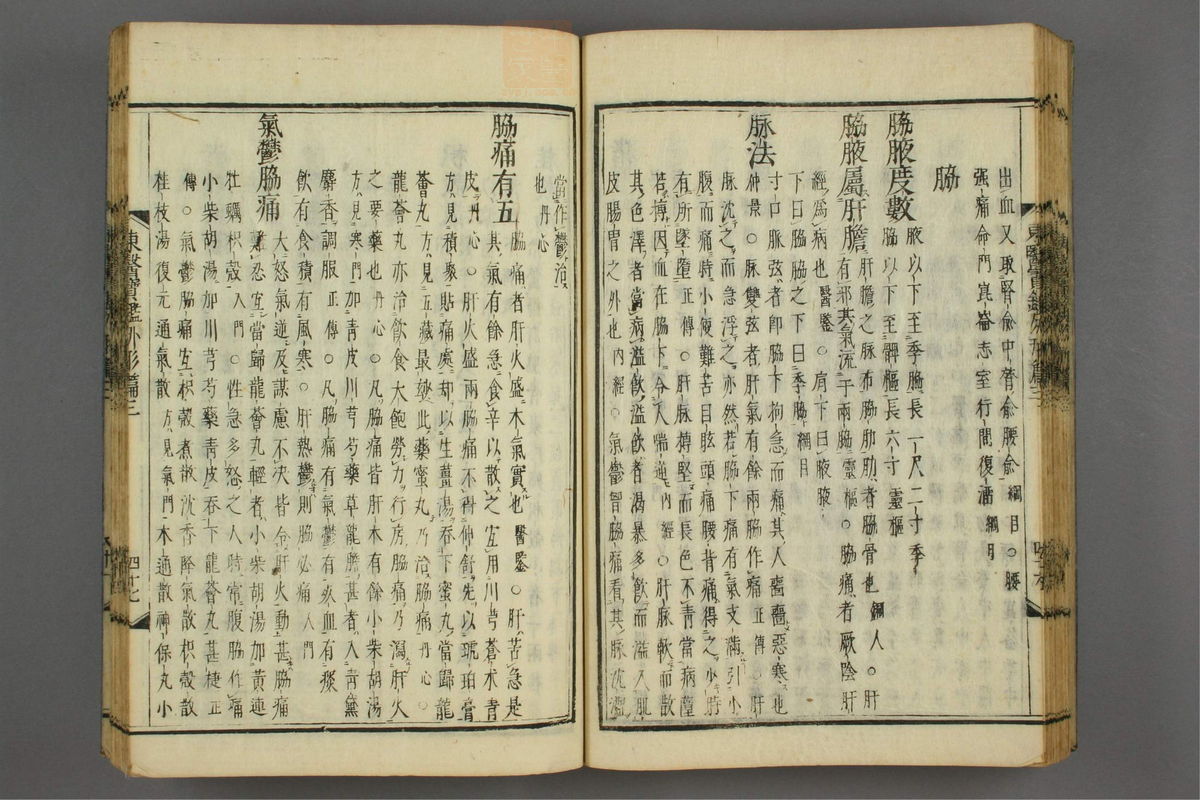 出血又取腎俞中膂俞腰俞 綱目○腰
强痛命門崑崙志室行間復溜 綱目
脇
脇腋度數 腋以下至季脇長一尺二寸季
脇以下至髀樞長六寸 靈樞
脇腋屬肝膽 肝膽之脉布脇肋肋者脇骨也 銅人○肝
有邪其氣流于兩脇 靈樞○脇痛者厥陰肝
經爲病也 醫鑒○肩下曰腋腋
下曰脇脇之下曰季脇 綱目
脉法 寸口脉弦者卽脇下拘急而痛其人嗇嗇惡寒也
仲景○脉雙弦者肝氣有餘兩脇作痛 正傳○肝
脉沈之而急浮之亦然若脇下痛有氣支滿引小
腹而痛時小便難苦目眩頭痛腰背痛得之少時
有所墜墮 正傳○肝脉搏堅而長色不靑當病墜
若搏因血在脇下令人喘逆 內經○肝脉軟而散
其色澤者當病溢飮溢飮者渴暴多飮而溢入肌
皮腸胃之外也 內經○氣鬱胷脇痛看其脉沈濇
當作鬱治
也 丹心
脇痛有五 脇痛者肝火盛木氣實也 醫鑒○肝苦急是
其氣有餘急食辛以散之宜用川芎蒼朮靑
皮 丹心○肝火盛兩脇痛不得伸舒先以琥珀膏
方見積聚貼痛處却以生薑湯吞下蜜丸當歸龍
薈丸 方見五藏最妙此藥蜜丸乃治脇痛 丹心○
龍薈丸亦治飮食大飽勞力行房脇痛乃瀉肝火
之要藥也 丹心○凡脇痛皆肝木有餘小柴胡湯
方見寒門加靑皮川芎芍藥草龍膽甚者入靑黛
麝香調服 正傳○凡脇痛有氣鬱有死血有痰
飮有食積有風寒○肝熱鬱則脇必痛 入門
氣鬱脇痛 大怒氣逆及謀慮不決皆令肝火動甚脇痛
難忍宜當歸龍薈丸輕者小柴胡湯加黃連
牡蠣枳殼 入門○性急多怒之人時常腹脇作痛
小柴胡湯加川芎芍藥靑皮吞下龍薈丸甚棲 正
傳○氣鬱脇痛宜枳殼煮散沈香降氣散枳殼散
桂枝湯復元通氣散 方見氣門木通散神保丸小
東醫寶鑑外形篇三
四十七